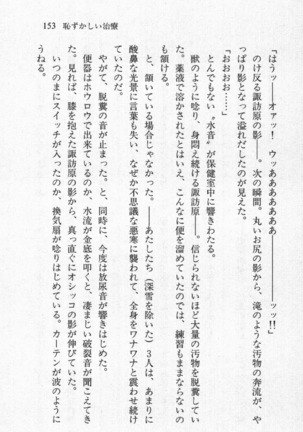 153　恥ずかしい治療
「はうッ――オァッ！　ウッあああああああ――――ッッ!!」
のけ反る諏訪原の影――。次の瞬間。丸いお尻の影から、滝のような汚物の奔流が、や
っぱり影となって溢れだしたのが見えた。
「おおおお……」
とんでもない〝水音〟が保健室中に響きわたる。
獣のように唸り、身悶え続ける諏訪原――。信じられないほど大量の汚物を脱糞してい
た。薬液で溶かされたとはいえ、こんなに便を溜めていたのでは、練習もままならないの
も頷ける。
と、頷いている場合じゃなかった。――あたしたち（深雪を除いた）３人は、あまりに
酸鼻な光景に言葉も失い、なぜか不思議な悪寒に襲われて、全身をワナワナと震わせ続け
ていたのだ。
やがて、脱糞の音が止まった。と、同時に、今度は放尿音が響きはじめた。
便器はホウロウで出来ているのか、水流が金底を叩くと、凄まじい破裂音が聞こえてき
た。見れば、膝を抱えた諏訪原の影から、真っ直ぐにオシッコの影が伸びていた。
いつのまにスイッチが入ったのか、換気扇が唸りはじめている。カーテンが波のように
うねる。